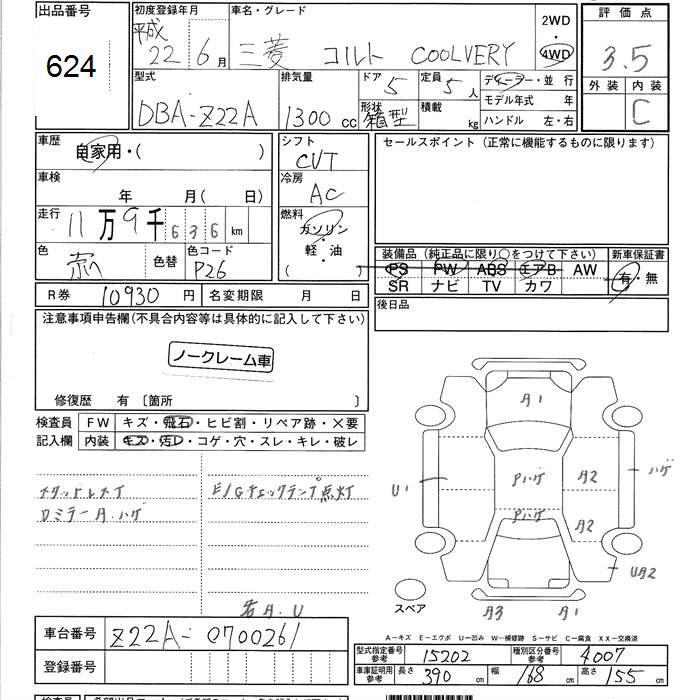 出品番号
624
初度登録年月
平成
22 年 6 月
車名・グレード
三菱 コルト COOLVERY
2WD
・
4WD
評価点
3.5
外装 内装
C
型式
DBA-Z22A
排気量
1300 cc
ドア 5
形状 箱型
定員 5 人
積載 kg
ディーラー・並行
モデル年式 年
ハンドル 左・右
車歴
自家用・( )
車検
年 月( 日)
走行
11万9千636km
色
赤
色替
色コード
P26
シフト
CVT
冷房
AC
燃料
ガソリン
・
軽・油
( )
セールスポイント(正常に機能するものに限ります)
装備品(純正品に限り○をつけて下さい)
PS PW ABS エアB AW
SR ナビ TV カワ
新車保証書
有・無
後日品
R券 10930 円
名変期限 月 日
注意事項申告欄(不具合内容等は具体的に記入して下さい)
ノークレーム車
修復歴 有〔箇所 〕
検査員
記入欄
FW キズ・飛石・ヒビ割・リペア跡・×要
内装 キズ・汚レ・コゲ・穴・スレ・キレ・破レ
E/Gチェックランプ点灯
ロミラーA.ハゲ
若A.U
A1
U1
Pハゲ
A2
ハゲ
Pハゲ
A2
UA2
スペア
A3
A1
A-キズ E-エクボ U-凹み W-補修跡 S-サビ C-腐食 XX-交換済
車台番号 Z22A-0700261
登録番号
型式指定番号
参考
15202
種別区分番号
参考
4007
車庫証明用
参考
長さ 390 cm 幅 168 cm 高さ 155 cm